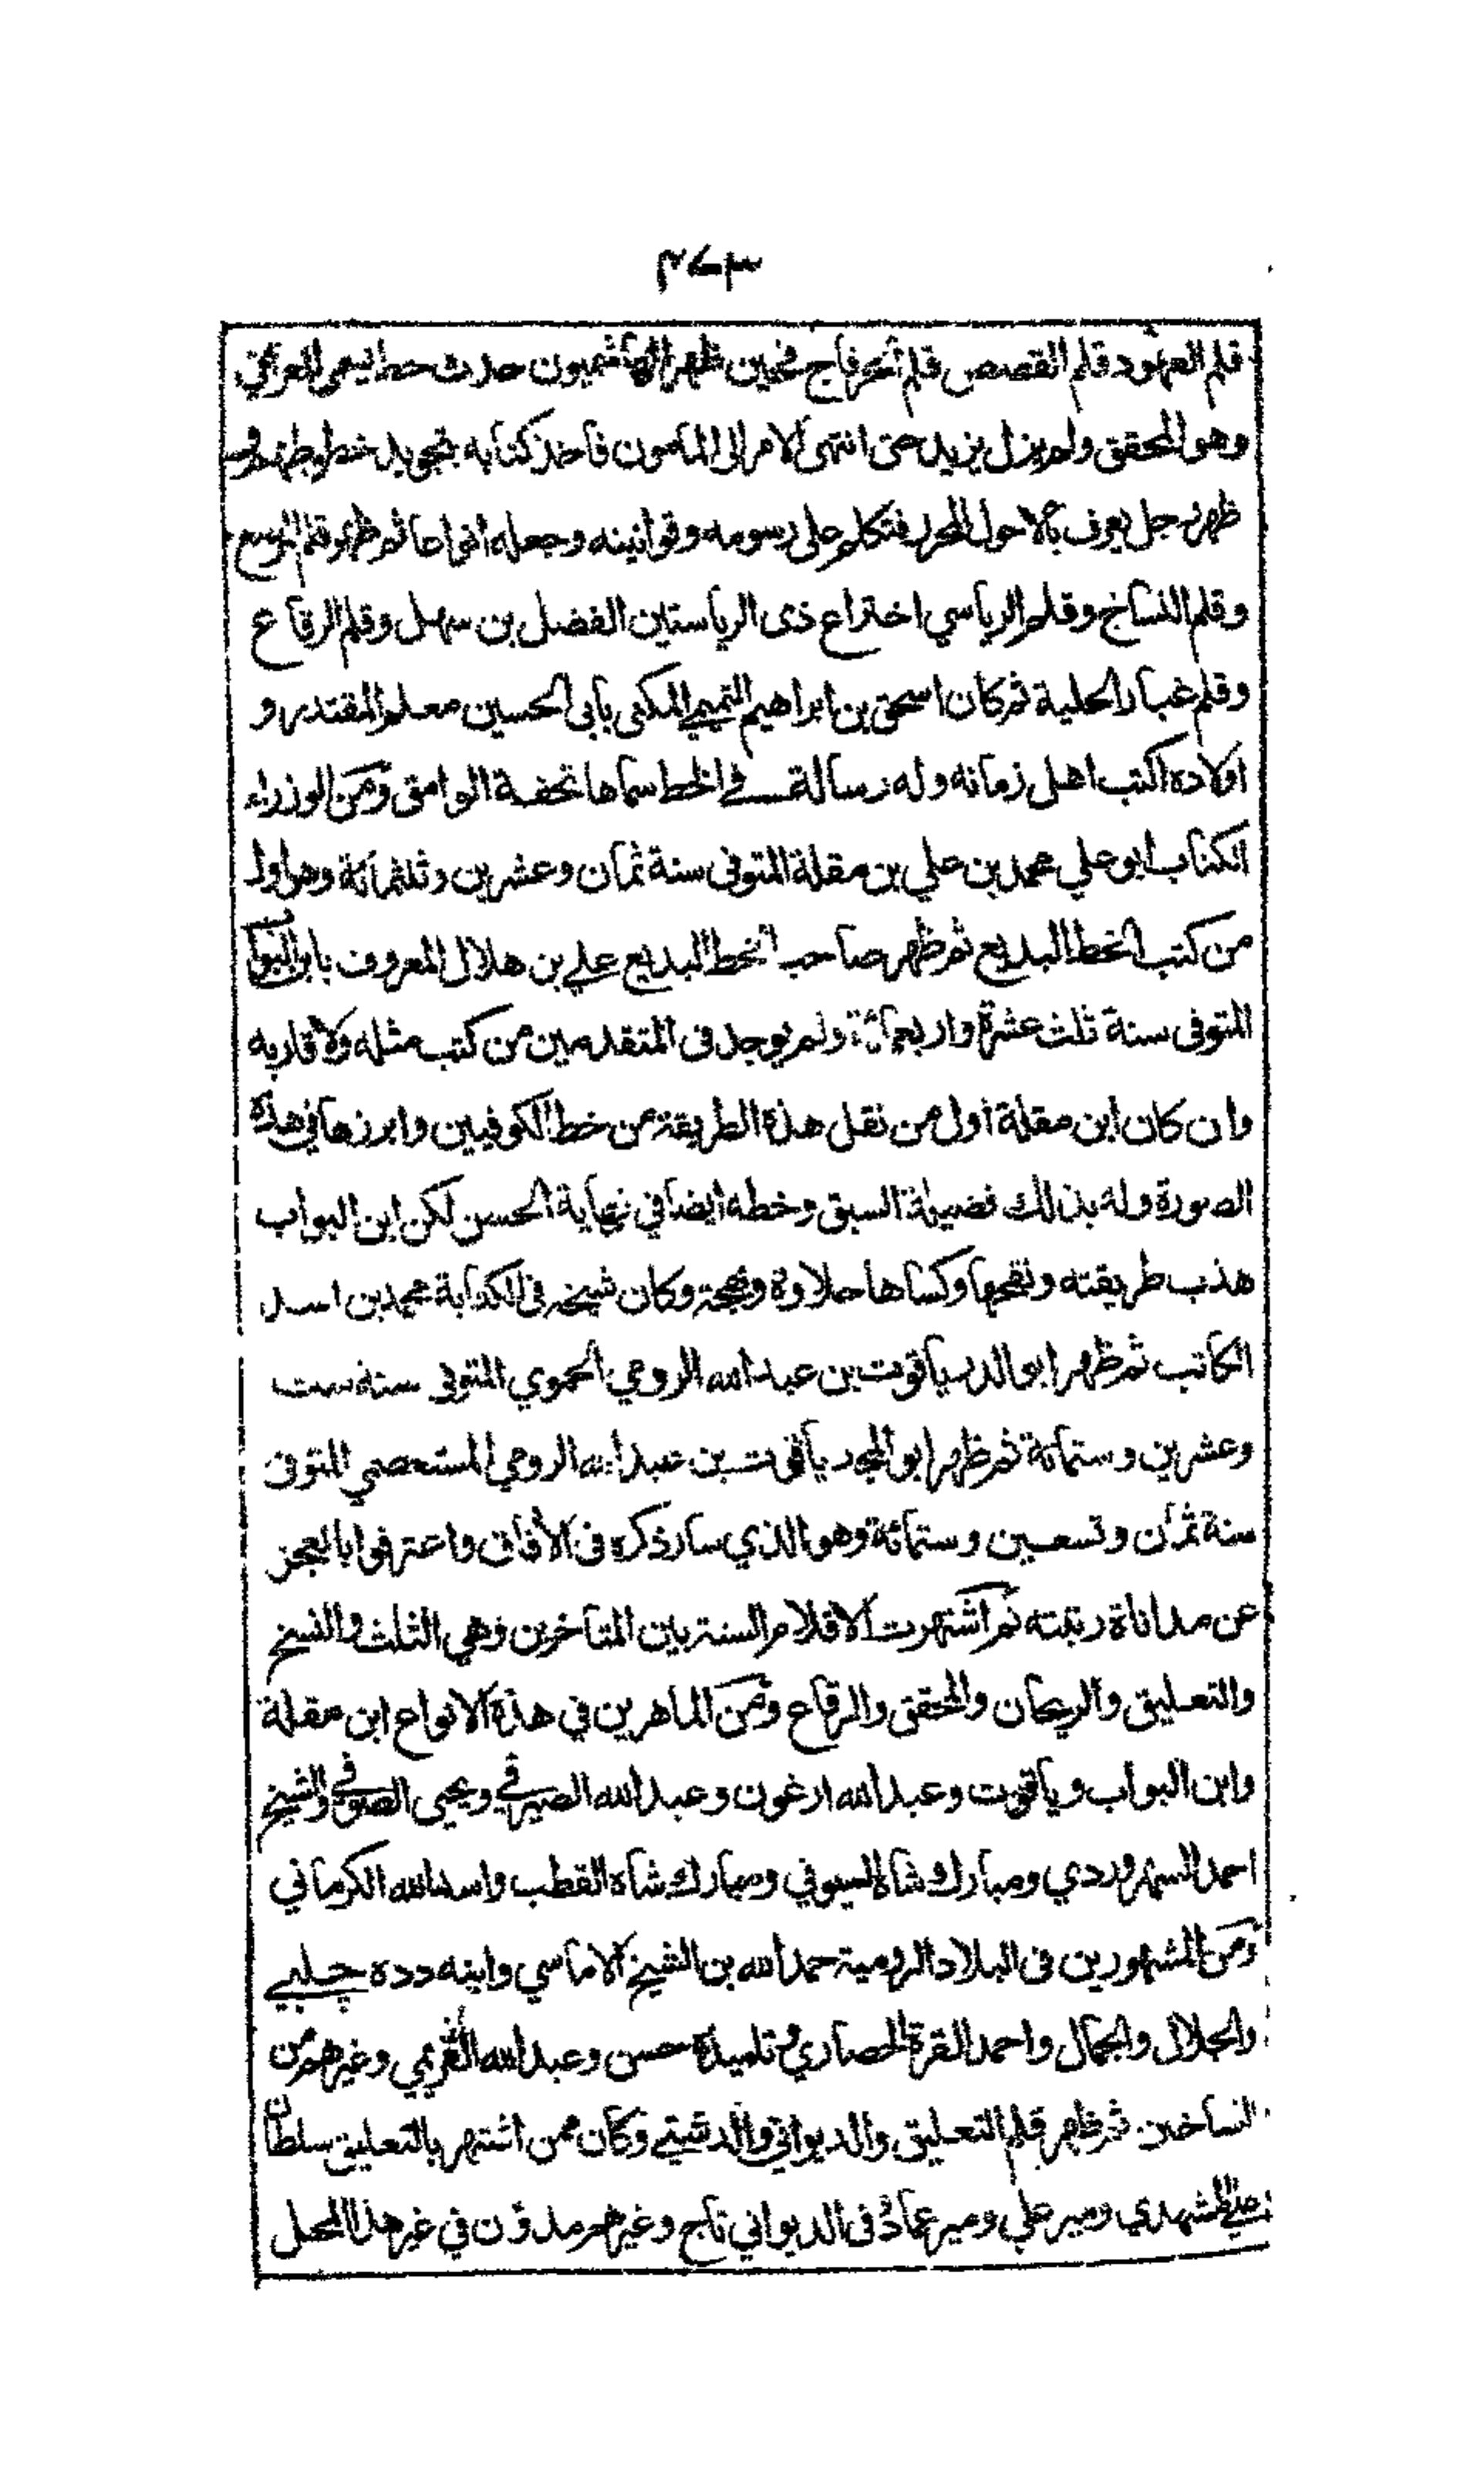 ٣٧٣
قلم العهود قلم القصص قلم الخرفاج فحين ظهر الهاشميون حدث خط يسمى العراقي
وهو المحقق ولم يزل يزيد حتى انتهى الامر الى المامون فاخذ كتابه بتجويد خطوطهم و
ظهر رجل يعرف بالاحول المحرر فتكلم على رسومه وقوانينه وجعله انواعا ثم ظهر قلم المرصع
وقلم النساخ وقلم الرياسي اختراع ذى الرياستين الفضل بن سهل وقلم الرقاع
وقلم غبار الحلية ثم كان اسحق بن ابراهيم التميمي المكنى بابى الحسين معلم المقتدر و
اولاده اكتب اهل زمانه وله رسالة في الخط سماها تحفة الوامق ومن الوزراء
الكتاب ابو علي محمد بن علي بن مقلة المتوفى سنة ثمان وعشرين وثلثمائة وهو اول
من كتب الخط البديع ثم ظهر صاحب الخط البديع علي بن هلال المعروف بابن البواب
المتوفى سنة ثلث عشرة واربعمائة ولم يوجد فى المتقدمين من كتب مثله ولا قاربه
وان كان ابن مقلة اول من نقل هذه الطريقة من خط الكوفيين وابرزها في هذه
الصورة وله بذلك فضيلة السبق وخطه ايضا في نهاية الحسن لكن ابن البواب
هذب طريقته ونقحها وكساها حلاوة وبهجة وكان شيخه فى الكتابة محمد بن اسد
الكاتب ثم ظهر ابو الدر ياقوت بن عبد الله الرومي الحموي المتوفى سنة ست
وعشرين وستمائة ثم ظهر ابو المجد ياقوت بن عبد الله الرومي المستعصمي المتوفى
سنة ثمان وتسعين وستمائة وهو الذي سار ذكره فى الآفاق واعترفوا بالعجز
عن مداناة رتبته ثم اشتهرت الاقلام الستة بين المتاخرين وهي الثلث والنسخ
والتعليق والريحان والمحقق والرقاع ومن الماهرين في هذه الانواع ابن مقلة
وابن البواب وياقوت وعبد الله ارغون وعبد الله الصيرفي ويحيى الصوفي والشيخ
احمد السهروردي ومبارك شاه السيوفي ومبارك شاه القطب واسد الله الكرماني
ومن المشهورين فى البلاد الرومية حمد الله بن الشيخ الاماسي وابنه دده چلبي
والجلال والجمال واحمد القرة الحصاري وتلميذه حسن وعبد الله القريمي وغيرهم من
النساخين ثم ظهر قلم التعليق والديواني والدشتي وكان ممن اشتهر بالتعليق سلطان
علي المشهدي ومير علي ومير عماد وفى الديواني تاج وغيرهم مدون في غير هذا المحل